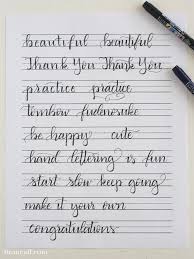 beautiful beautiful
Thank You Thank You
practice practice
tombow fudenosuke
be happy cute
hand lettering is fun
start slow keep going
make it your own
congratulations